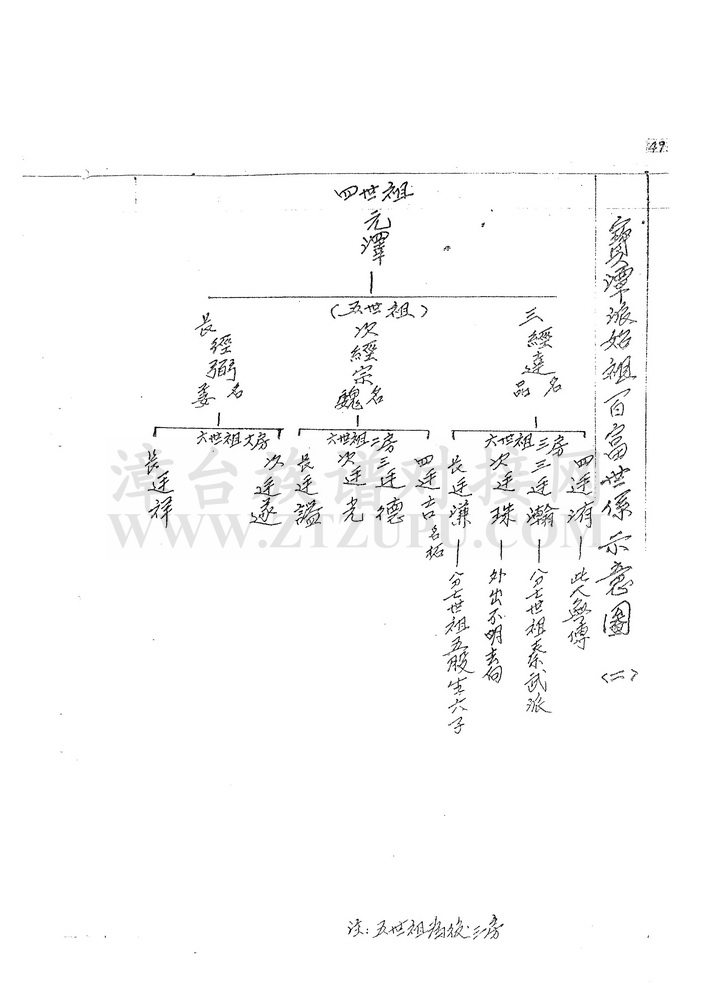 49
寶潭派始祖百富世係示意圖
<二>
四世祖
元澤
(五世祖)
三經達
名品
次經宗
名魏
長經弼
名委
六世祖三房
四廷洧
此人無傳
三廷瀚
分七世祖泰武派
次廷珠
外出不明去向
長廷濂
分七世祖五股生六子
六世祖二房
四廷吉名柘
三廷德
次廷光
長廷謚
六世祖大房
次廷遂
長廷祥
注:五世祖 三房
漳台族谱对接网
WWW.ZTZUPU.COM